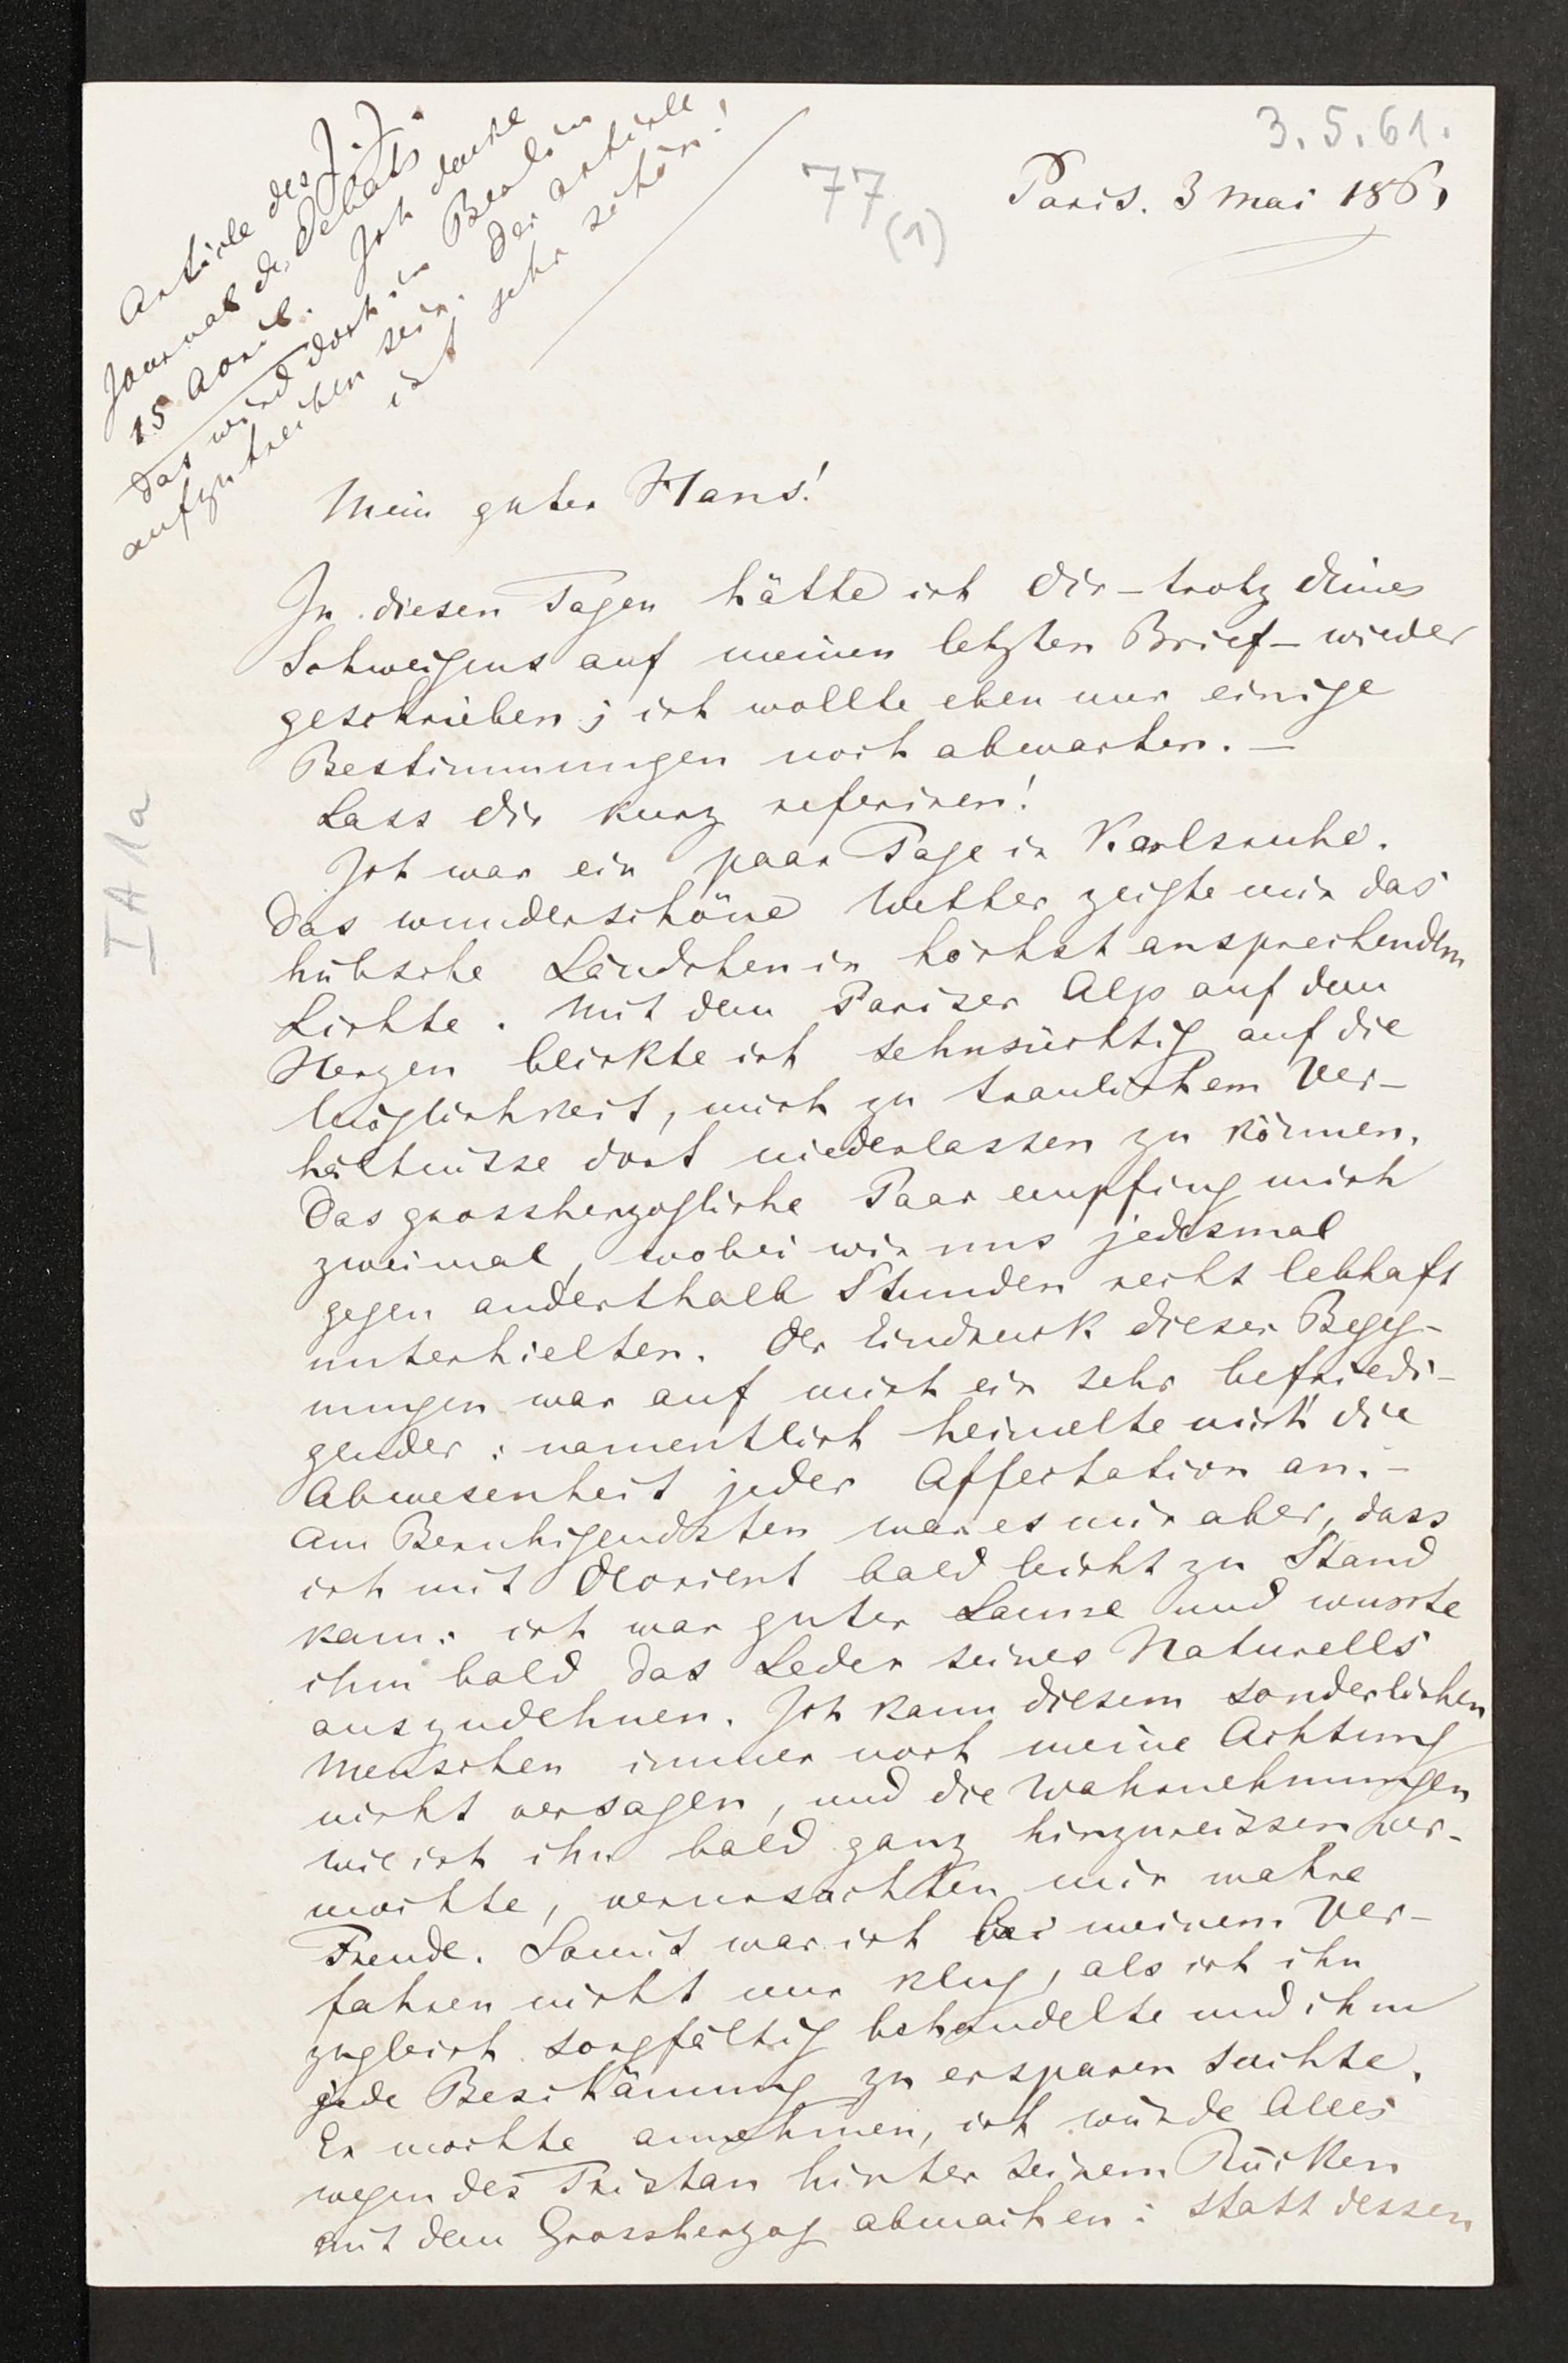 3.5.61.
77
(1)
Paris. 3 Mai 1861
Article des J. J.
Journal des Débats
15 April. Ich denke
das wird doch in Berlin
aufzutreiben sein. Der Artikel
ist sehr schön!
I A 1a
Mein guter Hans!
In diesen Tagen hätte ich Dir – trotz Deines
Schweigens auf meinen letzten Brief – wieder
geschrieben; ich wollte eben nur einige
Bestimmungen noch abwarten. –
Lass Dir kurz referiren!
Ich war ein paar Tage in Karlsruhe.
Das wunderschöne Wetter zeigte mir das
hübsche Ländchen in höchst ansprechendem
Lichte. Mit dem Pariser Alp auf dem
Herzen blickte ich sehnsüchtig auf die
Möglichkeit, mich zu traulichem Ver-
hältnisse dort niederlassen zu können.
Das grossherzogliche Paar empfing mich
zweimal, wobei wir uns jedesmal
gegen anderthalb Stunden recht lebhaft
unterhielten. Der Eindruck dieser Begeg-
nungen war auf mich ein sehr befriedi-
gender: namentlich heimelte mich die
Abwesenheit jeder Affectation an. –
Am Beruhigendsten war es mir aber, dass
ich mit Devrient bald leicht zu Stand
kam: ich war guter Laune und wusste
ihm bald das Leder seines Naturells
auszudehnen. Ich kann diesem sonderlichen
Menschen immer noch meine Achtung
nicht versagen, und die Wahrnehmungen
wie ich ihn bald ganz hinzureissen ver-
mochte, verursachten mir wahre
Freude. Somit war ich bei meinem Ver-
fahren nicht nur klug, als ich ihn
zugleich sorgfältig behandelte und ihm
jede Beschämung zu ersparen suchte.
Er mochte annehmen, ich würde Alles
wegen des Tristan hinter seinem Rücken
mit dem Grossherzog abmachen: statt dessen